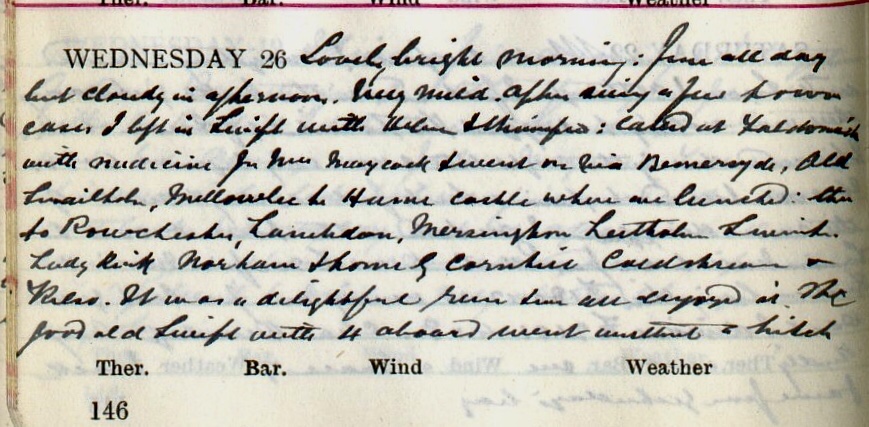 Ther. Bar. Wind Weather
WEDNESDAY 26 Lovely bright morning: fine all day
but cloudy in afternoon. Very mild. After seeing a few town
cases I left in Swift with Helen & : called at
with medicine for Mrs Maycock & went on via Bemersyde, Old
Smailholm, Mellowlees to Hume castle where we lunched: then
to Rowchester, Lambden, Mersington Leitholm Swinton
Ladykirk Norham & home by Cornhill Coldstream &
Kelso. It was a delightful run & we all enjoyed it. The
good old Swift with 4 aboard went without a hitch
Ther. Bar. Wind Weather
146